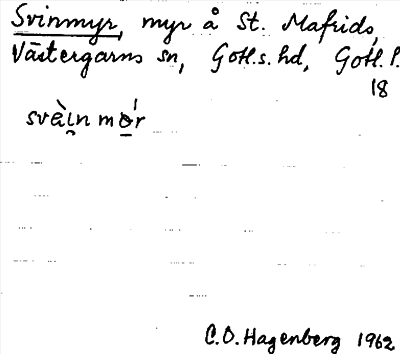 Svinmyr, myr å St. Mafrids,
Västergarns sn, Gotl.s.hd, Gotl. l.
18
C.O. Hagenberg 1962